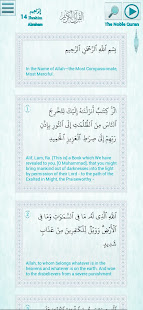 14 إبراهيم
Ibrahim
Abraham
القرآن الكريم
The Noble Quran
بِسْمِ اللَّهِ الرَّحْمَٰنِ الرَّحِيمِ
In the Name of Allah—the Most Compassionate,
Most Merciful.
الٓر ۚ كِتَٰبٌ أَنزَلْنَٰهُ إِلَيْكَ لِتُخْرِجَ
النَّاسَ مِنَ الظُّلُمَٰتِ إِلَى النُّورِ بِإِذْنِ
رَبِّهِمْ إِلَىٰ صِرَٰطِ الْعَزِيزِ الْحَمِيدِ
Alif, Lam, Ra. [This is] a Book which We have
revealed to you, [O Muhammad], that you might
bring mankind out of darknesses into the light
by permission of their Lord - to the path of the
Exalted in Might, the Praiseworthy -
اللَّهِ الَّذِي لَهُ مَا فِي السَّمَٰوَٰتِ وَمَا فِي
الْأَرْضِ ۗ وَوَيْلٌ لِّلْكَٰفِرِينَ مِنْ عَذَابٍ
شَدِيدٍ
Allah, to whom belongs whatever is in the
heavens and whatever is on the earth. And woe
to the disbelievers from a severe punishment